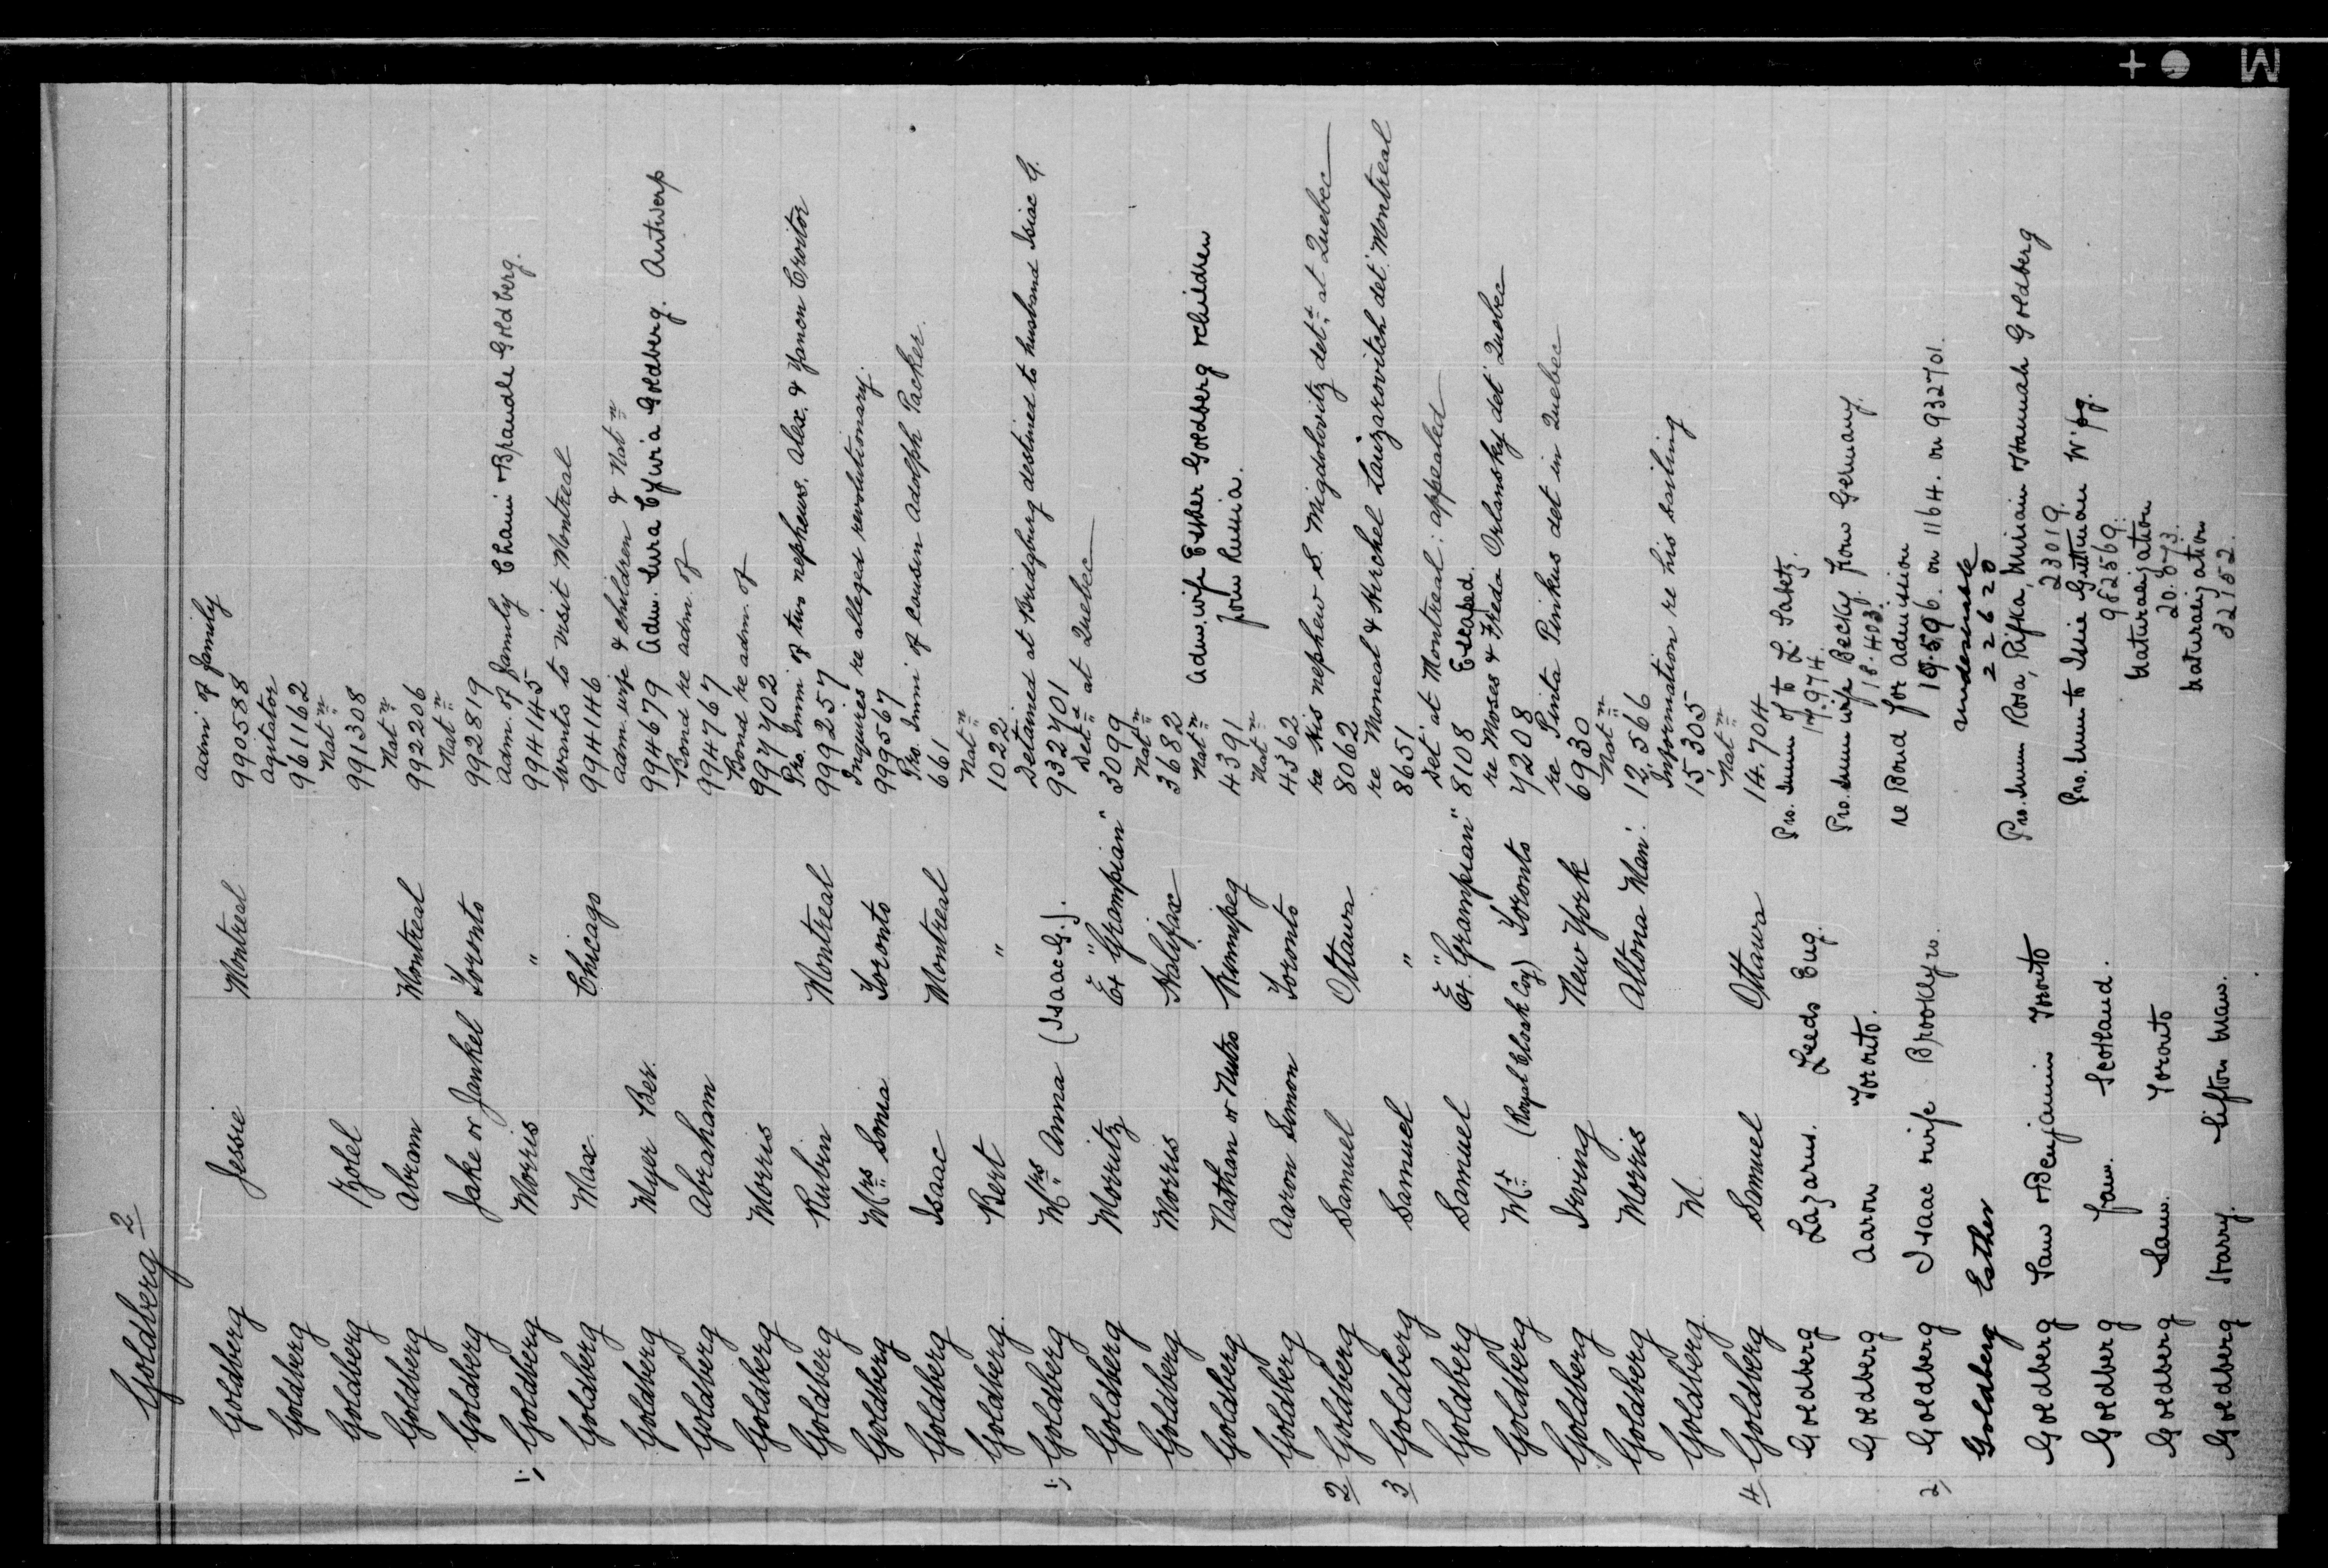 Goldberg 2
adm of family
Goldberg Jessie Montreal 990588
Agitator
Goldberg 961162
Nat n
Goldberg Zolel 991308
Nat n
Goldberg Abram Montreal 992206
Nat n
Goldberg Jake or Jankel Toronto 992819
adm. of family Chaim & Braudle Goldberg.
1; Goldberg Morris " 994145
wants to visit Montreal
Goldberg Max Chicago 994146
adm. wife & children & Nat n
Goldberg Myer Ber. 994679 Adm. Sura Cywia Goldberg. Antwerp
Bond re adm. of
Goldberg Abraham 994767
Bond re adm. of
Goldberg Morris 997702
Pro. Immi of two nephews, Alex. & Yancon Croitor
Goldberg Rubin Montreal 999257
Inquires re alleged revolutionary.
Goldberg Mrs Sonia Toronto 999567
Pro. Immi of cousin Adolph Packer.
Goldberg Isaac Montreal 661
Nat n
Goldberg. Bert " 1022
Detained at Bridgburg destined to husband Isiac G.
1; Goldberg Mrs Anna (Isaac G.). 932701
Det d at Quebec
Goldberg Morritz Ex "Grampian" 3099
Nat n
Goldberg Morris Halifax 3682
Nat n Adm. wife Esther Goldberg & children
Goldberg Nathan or Nutro Winnipeg 4391 from Russia.
Nat n
Goldberg Aaron Simon Toronto 4362
re his nephew S. Migdolovitz det d at Quebec
2 Goldberg Samuel Ottawa 8062
re Moneal & Herchel Laizarovitch det d Montreal
3 Goldberg Samuel " 8651
Det d at Montreal: appealed
Goldberg Samuel Ex "Grampian" 8108 Escaped.
re Moses & Freda Orlansky det d Quebec
Goldberg Mr (Royal Cloak Coy) Toronto 7208
re Pinta Pinkus det in Quebec
Goldberg Irving New York 6930
Nat n
Goldberg Morris Altona Man: 12,566
Information re his sailing
Goldberg M. 15,305
Nat n
4 Goldberg Samuel Ottawa 14.704
Pro. Imm of to L. Sabetz.
Goldberg Lazarus. Leeds Eng. 17.974.
Pro. Imm wife Becky. from Germany.
Goldberg Aaron Toronto. 18.403.
re Bond for Admission
2, Goldberg Isaac & wife Brooklyn. 19.596. on 1164. on 932701.
undesirable
Goldberg Esther 22620
Pro. Imm Rosa, Rifka, Miriam & Hannah Goldberg
Goldberg Sam & Benjamin Toronto 23019.
Pro. Imm to Issie Guttman W'pg.
Goldberg Jam. Scotland. 962569.
Naturalization
Goldberg Sam. Toronto 20.873.
Naturalization
Goldberg Harry. Sifton Man. 32152.